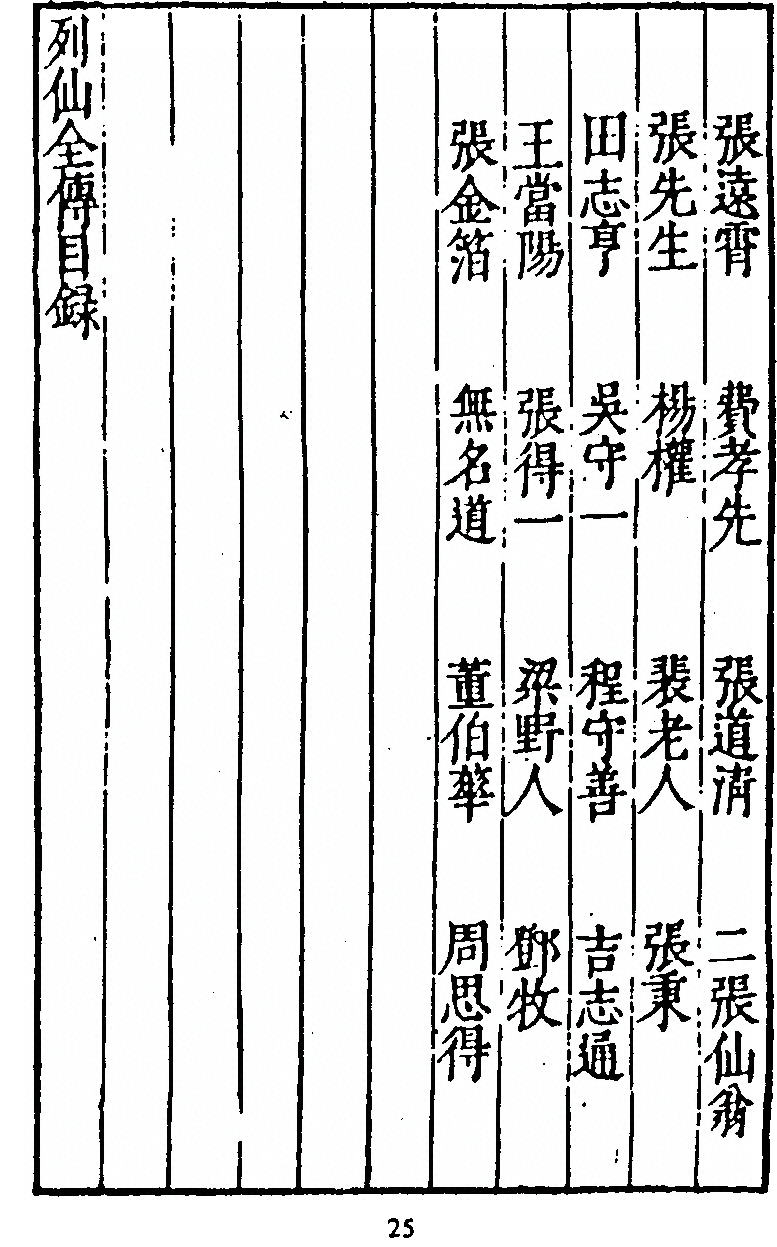 張遠霄　費孝先　張道清　二張仙翁
張先生　楊權　裴老人　張秉
田志亨　吳守一　程守善　吉志通
王當陽　張得一　梁野人　鄧牧
張金箔　無名道　董伯華　周思得
列仙全傳目録
25